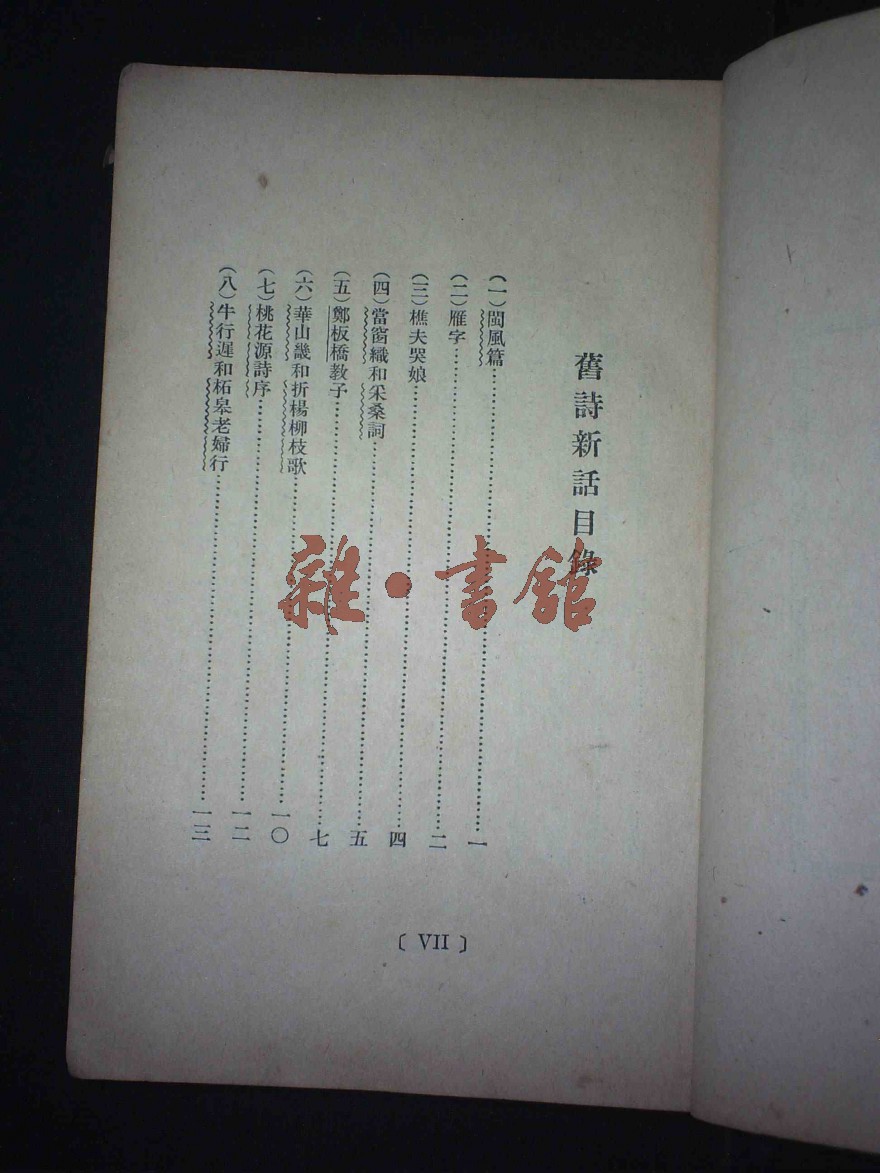 舊詩新話目錄
（一）閩風篇……一
（二）雁字……二
（三）樵夫哭娘……四
（四）當窗織和采桑詞……五
（五）鄭板橋教子……七
（六）華山畿和折楊柳枝歌……一〇
（七）桃花源詩序……一二
（八）牛行遲和柘皋老婦行……一三
〔VII〕
雜·書館